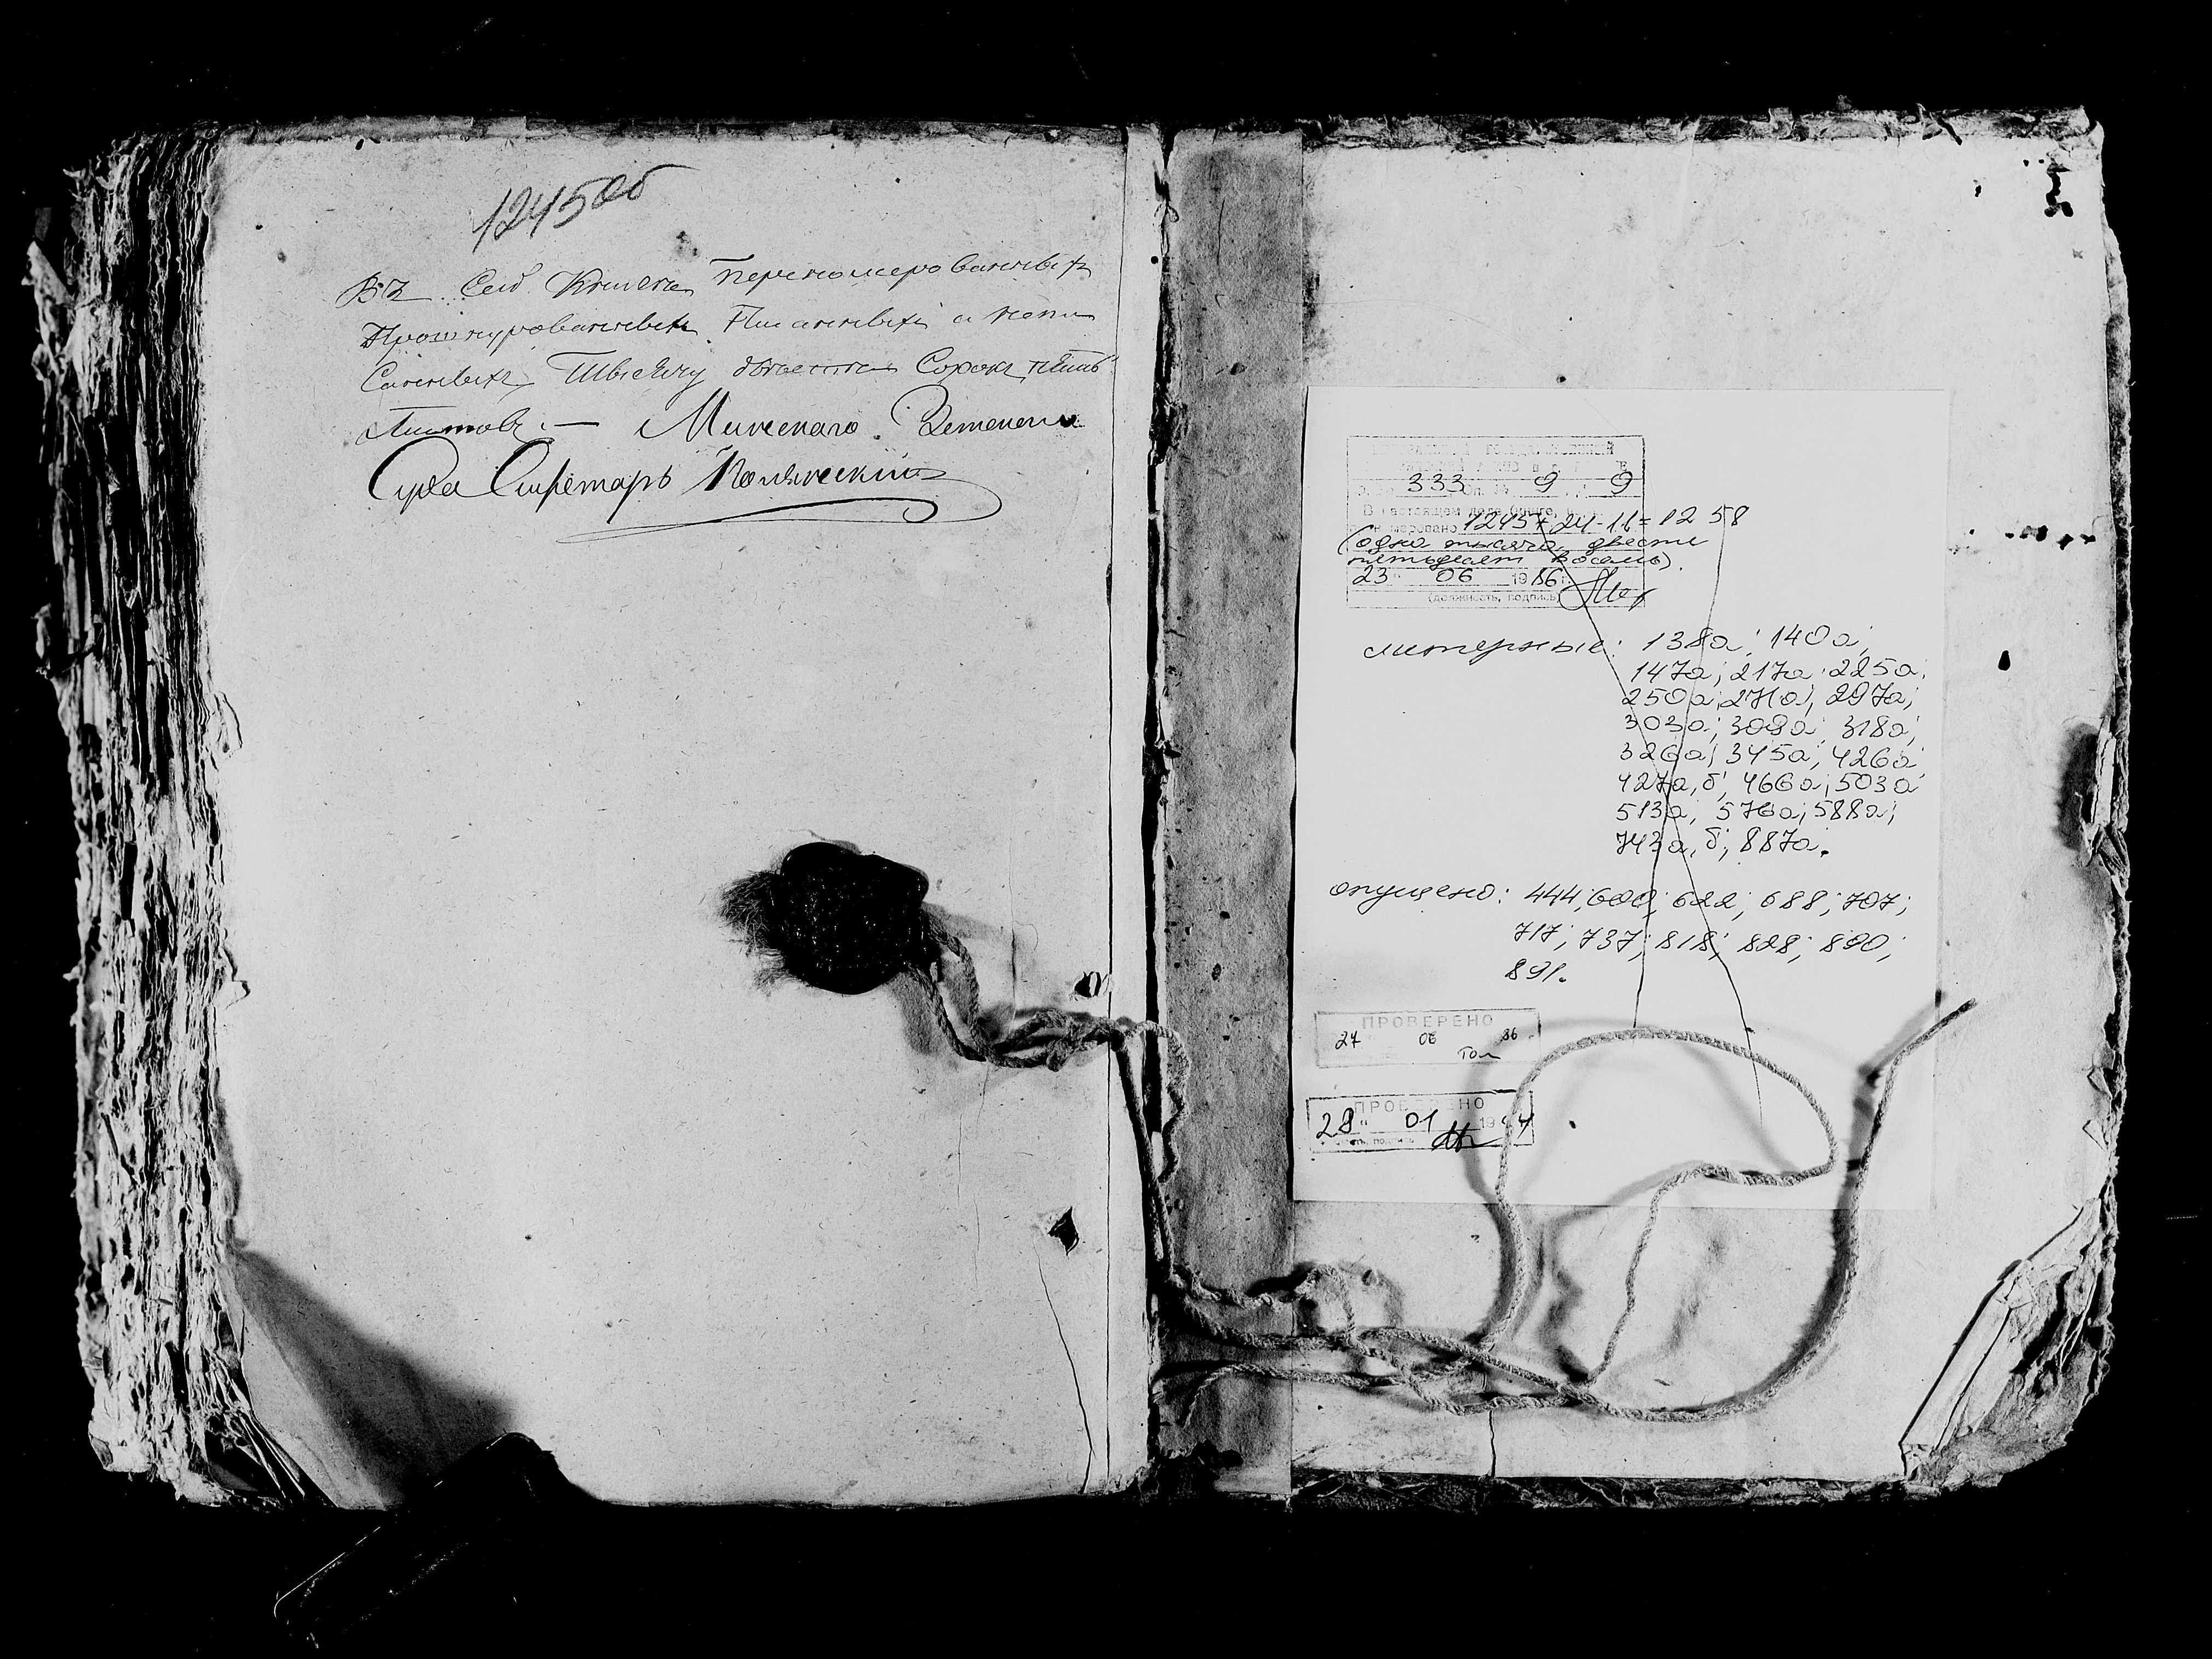 1245об
Въ сей Книгѣ перенумерованныхъ
Прошнурованныхъ Писанныхъ и непи
Санныхъ Тысячу двѣсти Сорокъ пять
Листовъ. — Минскаго Земскаго
Суда Секретарь
333 9 9
В настоящем деле
1245+24-11=1258
(одна тысяча двести
пятьдесят восемь).
23 06 1986 г.
(должность, подпись)
литерные: 138а; 140а;
147а; 217а; 225а;
250а; 271а; 297а;
303а; 308а; 318а;
326а; 345а; 426а
427а, б; 466а; 503а
513а; 576а; 588а;
743а, б; 887а.
опущено: 444; 600; 622; 688; 707;
717; 737; 818; 828; 890;
891.
ПРОВЕРЕНО
27 06 86
ПРОВЕРЕНО
28 01 19